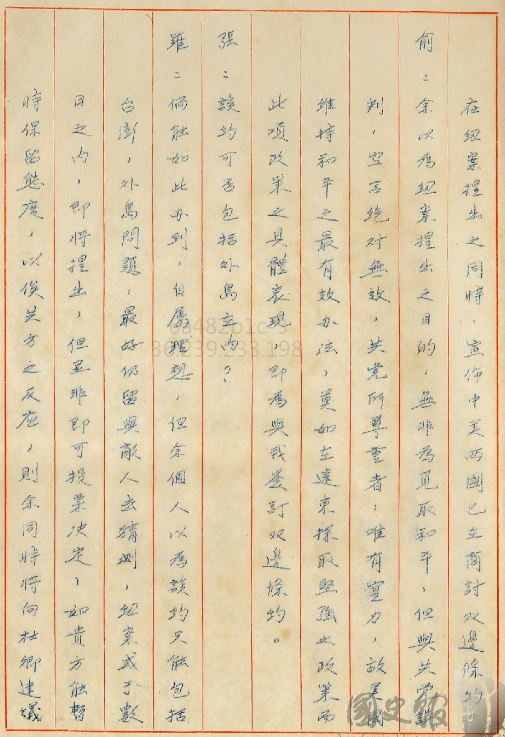 在紐案提出之同時，宣佈中美兩國已在商討双邊條約
俞：余以為紐案提出之目的，無非為覓取和平，但與共党談
判，空言绝对無效，共党所尊重者，唯有實力，故美國
維持和平之最有效办法，莫如在遠東採取堅強之政策而
此項政策之具體表現，即為與我簽訂双邊條约。
張：該约可否包括外島在內？
羅：倘能如此办到，自屬理想，但余個人以為該约只能包括
台澎，外島問題，最好仍留與敵人去猜测，紐案或于數
日之内，即將提出，但並非即可投票决定，如貴方能暫
時保留態度，以俟共方之反应，則余同時將向杜卿建議
國史館
36.239.233.198